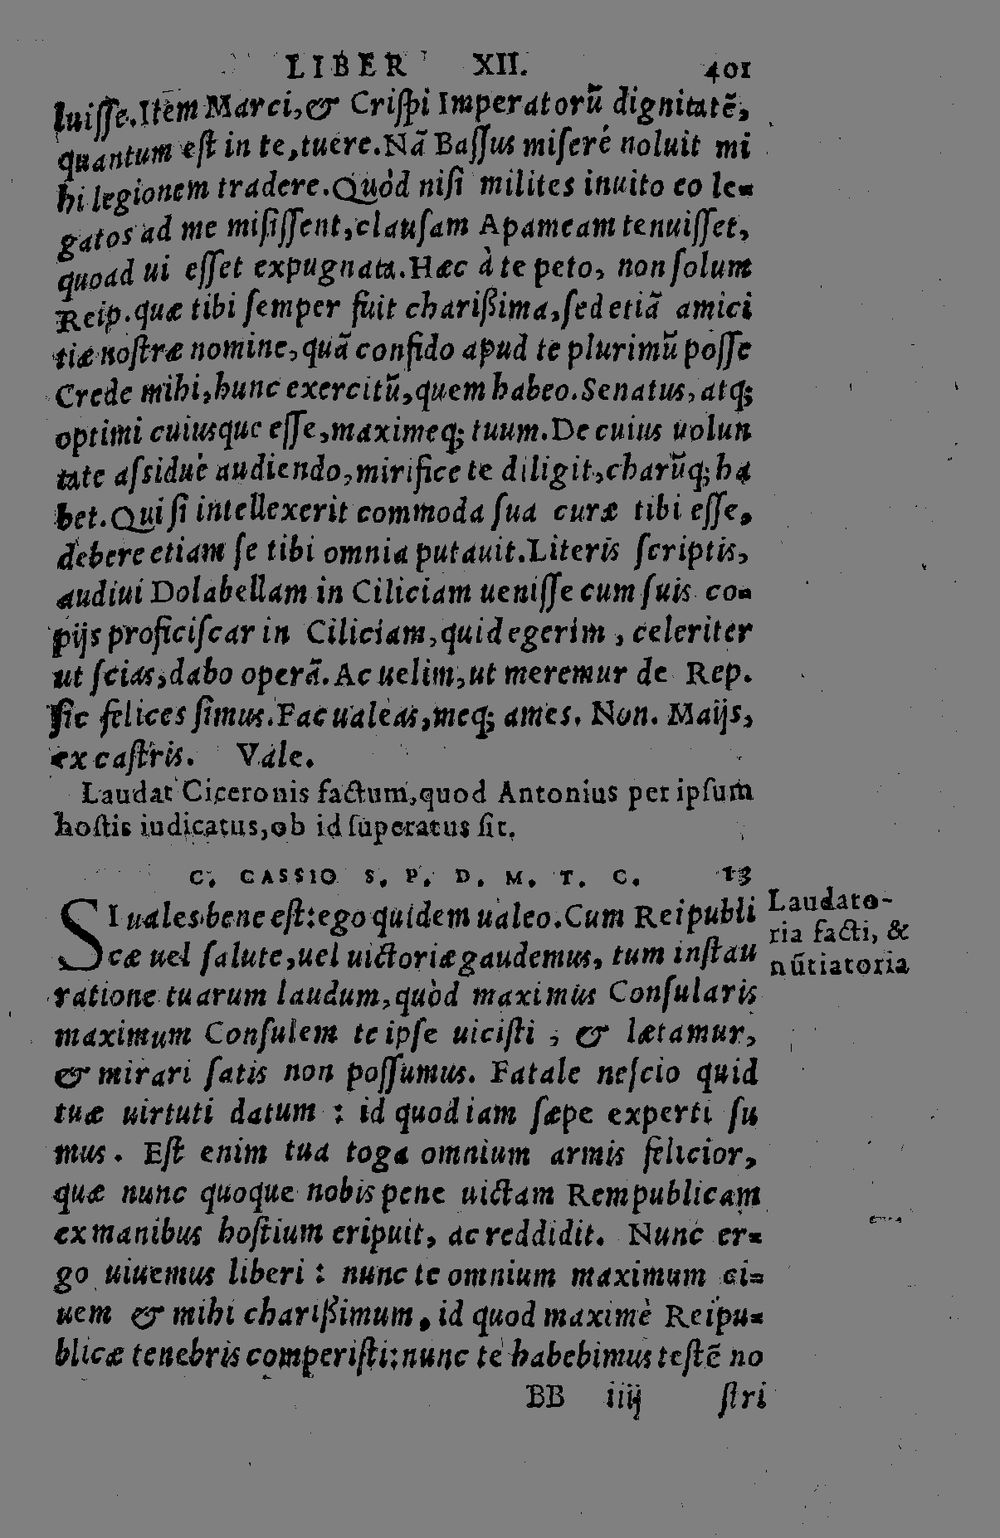 LIBER XII. 401
luiſſe. Item Marci, & Criſpi Imperatorũ dignitatẽ,
quantum eſt in te, tuere. Nã Baſſus miſeré noluit mi
hi legionem tradere. Quòd niſi milites inuito eo le-
gatos ad me miſiſſent, clauſam Apameam tenuiſſet,
quoad ui eſſet expugnata. Hæc à te peto, non ſolum
Reip. quæ tibi ſemper fuit chariſsima, ſed etiã amici
tiæ noſtræ nomine, quã confido apud te plurimũ poſſe
Crede mihi, hunc exercitũ, quem habeo. Senatus, atq;
optimi cuiusque eſſe, maximeq; tuum. De cuius uolun
tate aſsiduè audiendo, mirifice te diligit, charũq; ha
bet. Qui ſi intellexerit commoda ſua curæ tibi eſſe,
debere etiam ſe tibi omnia putauit. Literis ſcriptis,
audiui Dolabellam in Ciliciam ueniſſe cum ſuis co-
pijs proficiſcar in Ciliciam, quid egerim, celeriter
ut ſcias, dabo operã. Ac uelim, ut meremur de Rep.
ſic felices ſimus. Fac ualeas, meq; ames. Non. Maijs,
ex caſtris. Vale.
Laudat Ciceronis factum, quod Antonius per ipſum
hoſtis iudicatus, ob id ſuperatus ſit.
C. CASSIO S. P. D. M. T. C. 13
SI uales bene eſt: ego quidem ualeo. Cum Reipubli
cæ uel ſalute, uel uictoriæ gaudemus, tum inſtau
ratione tuarum laudum, quòd maximus Conſularis
maximum Conſulem te ipſe uiciſti, & lætamur,
& mirari ſatis non poſſumus. Fatale neſcio quid
tuæ uirtuti datum: id quod iam ſæpe experti ſu
mus. Eſt enim tua toga omnium armis felicior,
quæ nunc quoque nobis pene uictam Rempublicam
ex manibus hoſtium eripuit, ac reddidit. Nunc er-
go uiuemus liberi: nunc te omnium maximum ci-
uem & mihi chariſsimum, id quod maximè Reipu-
blicæ tenebris comperiſti: nunc te habebimus teſtẽ no
BB iiij ſtri
Laudato-
ria facti, &
nũtiatoria